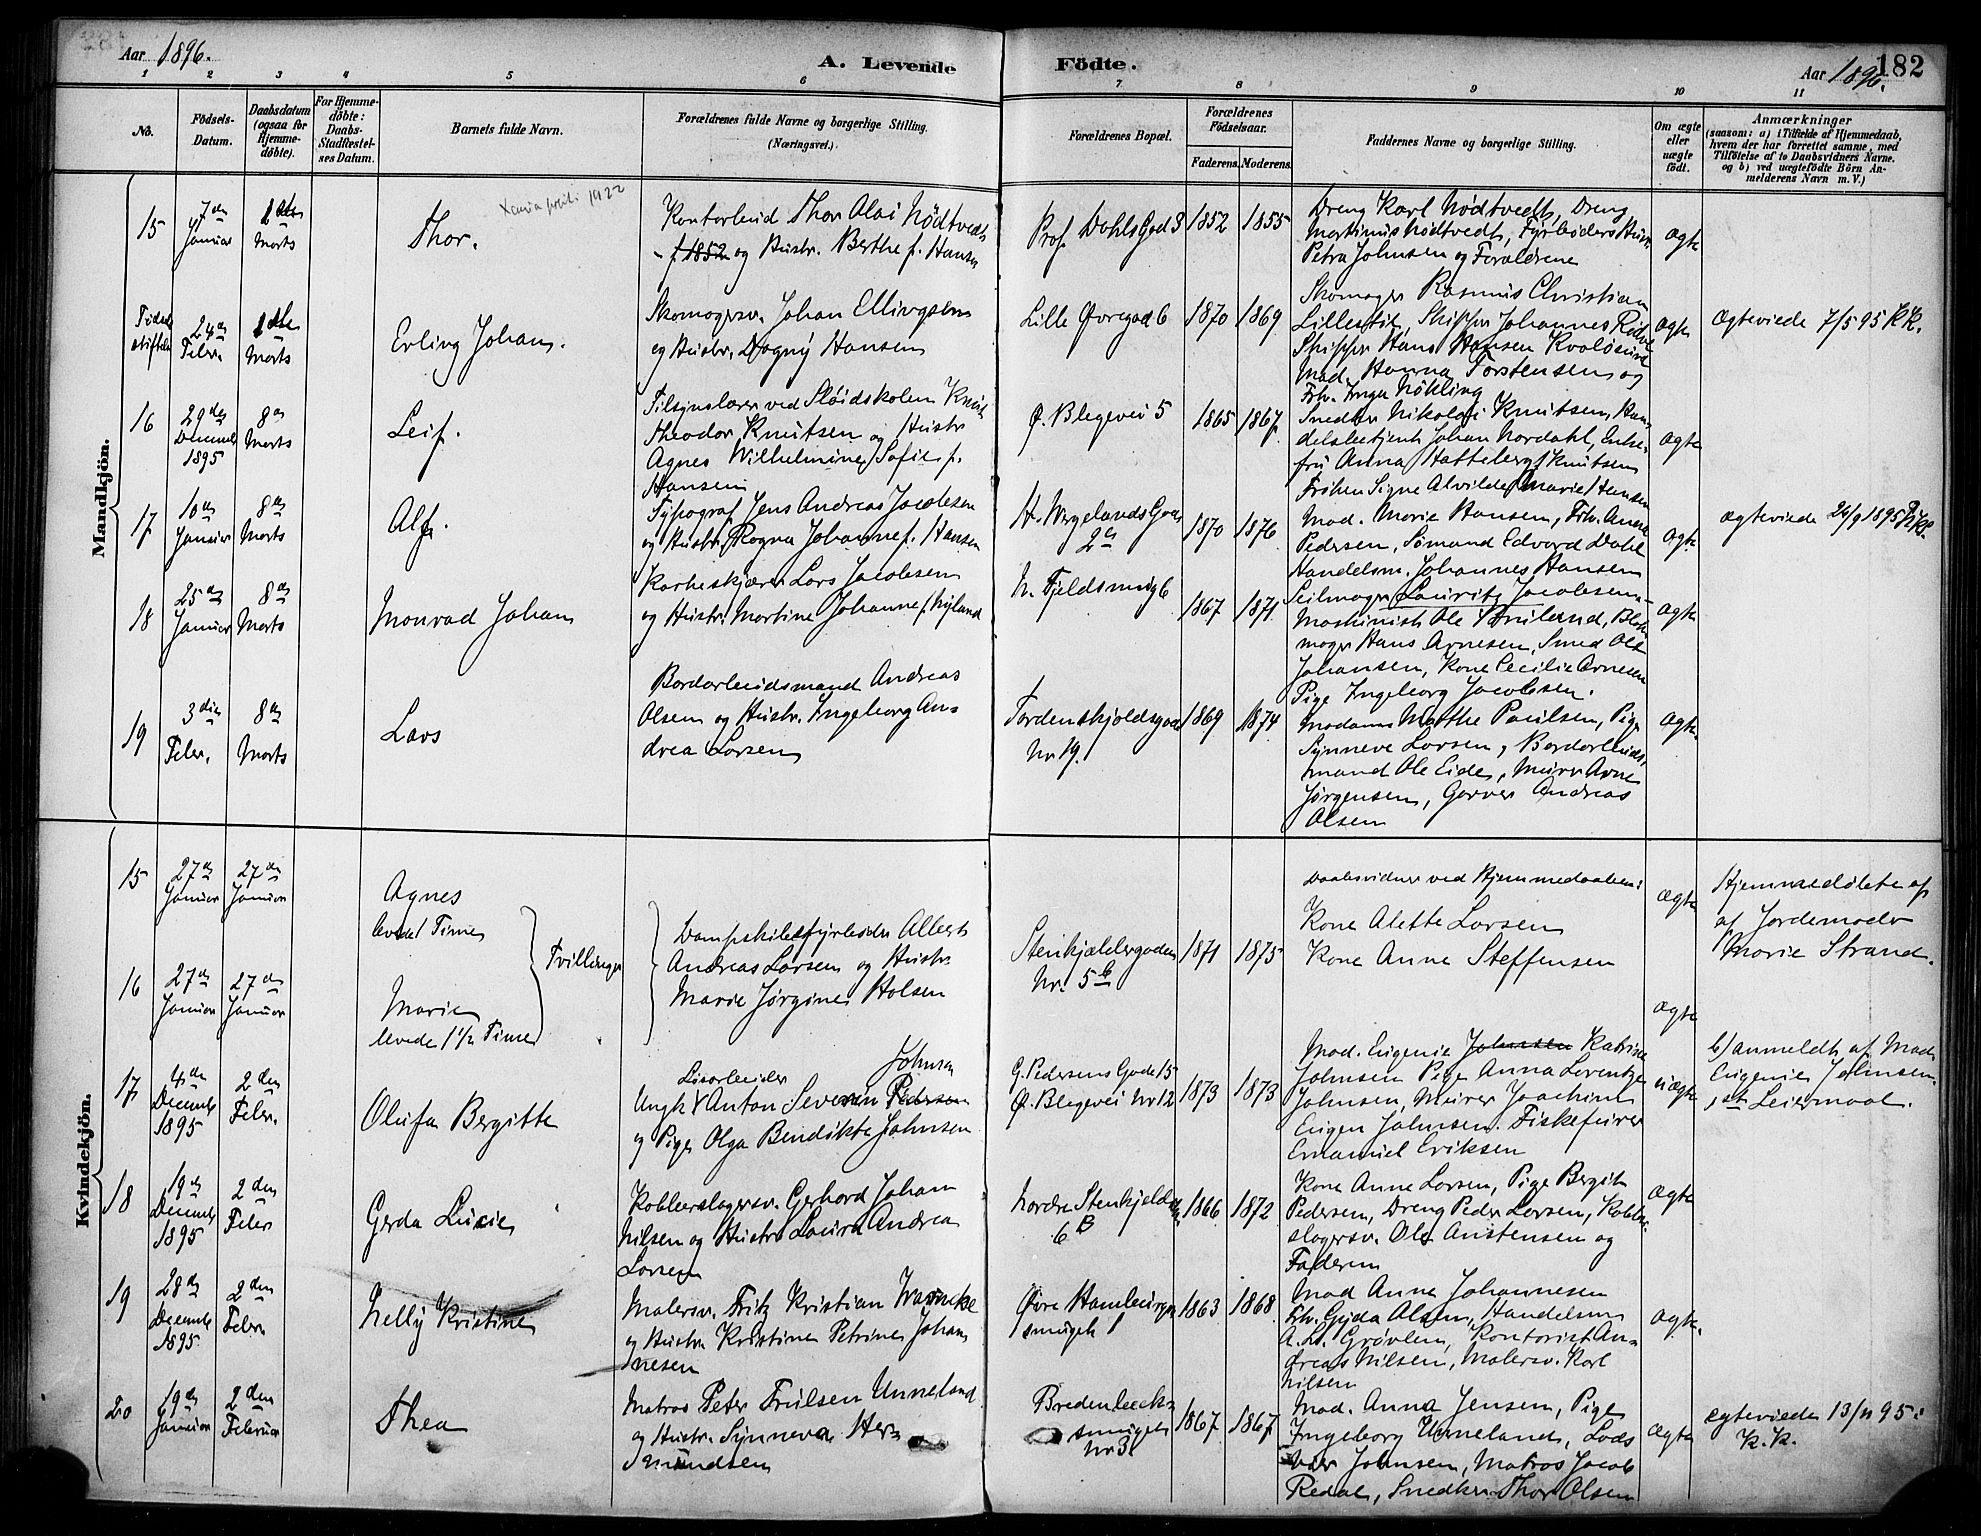 Aar 1896.
A. Levende
Födte.
Aar 1896.
182
1 2 3 4 5 6 7 8 9 10 11
No.
Födsels-
Datum.
Daabsdatum
(ogsaa for
Hjemme-
döbte).
For Hjemme-
döbte:
Daabs-
Stadfæstel-
ses Datum.
Barnets fulde Navn.
Forældrenes fulde Navne og borgerlige Stilling.
(Næringsvei.)
Forældrenes Bopæl.
Forældrenes
Födselsaar.
Faderens. Moderens.
Faddernes Navne og borgerlige Stilling.
Om ægte
eller
uægte
födt.
Anmærkninger
(saasom: a) i Tilfælde af Hjemmedaab,
hvem der har forrettet samme, med
Tilföielse af to Daabsvidners Navne.
og b) ved uægtefödte Börn An-
melderens Navn m. V.)
Mandkjön.
15
7de
Januar
1ste
Marts
Thor.
politi 1922
Kontorbud Thor Nödtvedt
f. 1852 og Hustr. Berthe f. Hansen
Prof. Dahls Gad 3
1852 1855
Dreng Karl Nödtvedt, Dreng
Martinus Nödtvedt, Fyrböders Hustr.
Petra Johnsen og Forældrene
ægte
24de
Febr.
1ste
Marts
Erling Johan.
Skomagersv. Johan Ellingsen
og Hustr. Dagny Hansen
Lille Øvregad 6
1870 1869
Skomager Rasmus Christian
Lillestöl, Skipper Johannes
Skipper Hans Hansen
Mad. Hanna Torstensen og
Frk. Inga Nökling
ægte
ægteviede 7/5 95 KK.
16
29de
Decemb.
1895
8de
Marts
Leif.
Tilsynslærer ved Slöidskolen Knut
Theodor Knutsen og Hustr.
Agnes Wilhelmine Sofie f.
Hansen
Ø. Blegevei 5
1865 1867
Snedker Nikolai Knutsen, Han-
delsbetjent Johan Nordahl, Enke-
fru Anna Hatteberg Knutsen
Fröken Signe Alvilde Marie Hansen
ægte
17
10de
Januar
8de
Marts
Alf.
Typograf Jens Andreas Jacobsen
og Hustr. Ragna Johanne f. Hansen
H. Wergelands Gade
2
1870 1876
Mad. Marie Hansen, Frk. Anna
Pedersen, Sömand Edvard Dahl
Handelsm. Johannes Hansen
ægte
ægteviede 24/9 1895
18
25de
Januar
8de
Marts
Monrad Johan
Korkeskjærer Lars Jacobsen
og Hustr. Martine Johanne f. Nyland
N. Fjeldsmug 6
1867 1871
Seilmager Lauritz Jacobsen
Maskinist Ole Bruland, Blok-
mager Hans Arnesen, Smed Ole
Johansen, Kone Cecilie Arnesen
Pige Ingeborg Jacobsen.
ægte
19
3die
Febr.
8de
Marts
Lars
Bordarbeidsmand Andreas
Olsen og Hustr. Ingeborg An-
drea Larsen
Tordenskjoldsgad
Nr 19.
1869 1874
Madam Marthe Paulsen, Pige
Synneve Larsen, Bordarbeids-
mand Ole Eide, Murer Arne
Jørgensen, Garver Andreas
Olsen
ægte
Kvindekjön.
15
27de
Januar
27de
Januar
Agnes
levede 1 Time
Tvillinger
Dampskibsfyrböder Albert
Andreas Larsen og Hustr.
Marie Jørgine Holsen
Stenkjeldergaden
Nr. 5b
1871 1875
Daabsvidner ved Hjemmedaaben:
Kone Alette Larsen
Kone Anne Steffensen
ægte
Hjemmedöbte af
af Jordemoder
Marie Strand.
16
27de
Januar
27de
Januar
Marie
levede 1 1/2 Time
ægte
17
4de
Decemb.
1895
2den
Febr.
Olufa Bergitte
Löiarbeider Johnsen
Ungk Anton Severin Pedersen
og Pige Olga Bendikte Johnsen
G. Pedersens Gade 15
Ø. Blegevei Nr 12
1873 1873
Mad. Eugenie Johnsen Katrine
Johnsen Pige Anna Lorentze
Johnsen, Murer Joachim
Eugen Johnsen. Fiskefører
Emanuel Eriksen
uægte
b) anmeldt af Mad.
Eugenie Johnsen.
1ste Leiermaal.
18
19de
Decemb.
1895
2den
Febr
Gerda Lucie
Kobberslagersv. Gerhard Johan
Nilsen og Hustr. Laura Andrea
Larsen
Nordre Stenkjelderg.
6B
1866 1872
Kone Anne Larsen, Pige Bergit
Pedersen, Dreng Peder Larsen, Kobber-
slagersv. Ole Austensen og
Faderen
ægte
19
28de
Decemb.
1895
2den
Febr
Nelly Kristine
Malersv. Fritz Kristian Warncke
og Hustr. Kristine Petrine Johan-
nesen
Øvre Hamburger
smuget 1
1863 1868
Mad Anne Johannesen
Frk. Gyda Olsen, Handelsm.
A. Grövlen, Kontorist An-
dreas Nilsen, Malersv. Karl
Nilsen
ægte.
20
19de
Januar
2den
Februar
Thea
Matros Peter Trulsen Unneland
og Hustr. Synneva Her-
mundsen
Bredenbecks
smuget
Nr 3
1867 1867
Mad. Anna Jensen, Pige
Ingeborg Unneland, Lods
Johnsen, Matros Jacob
Redal, Snedker Thor Olsen
ægte
ægteviede 13/11 95.
K.K.